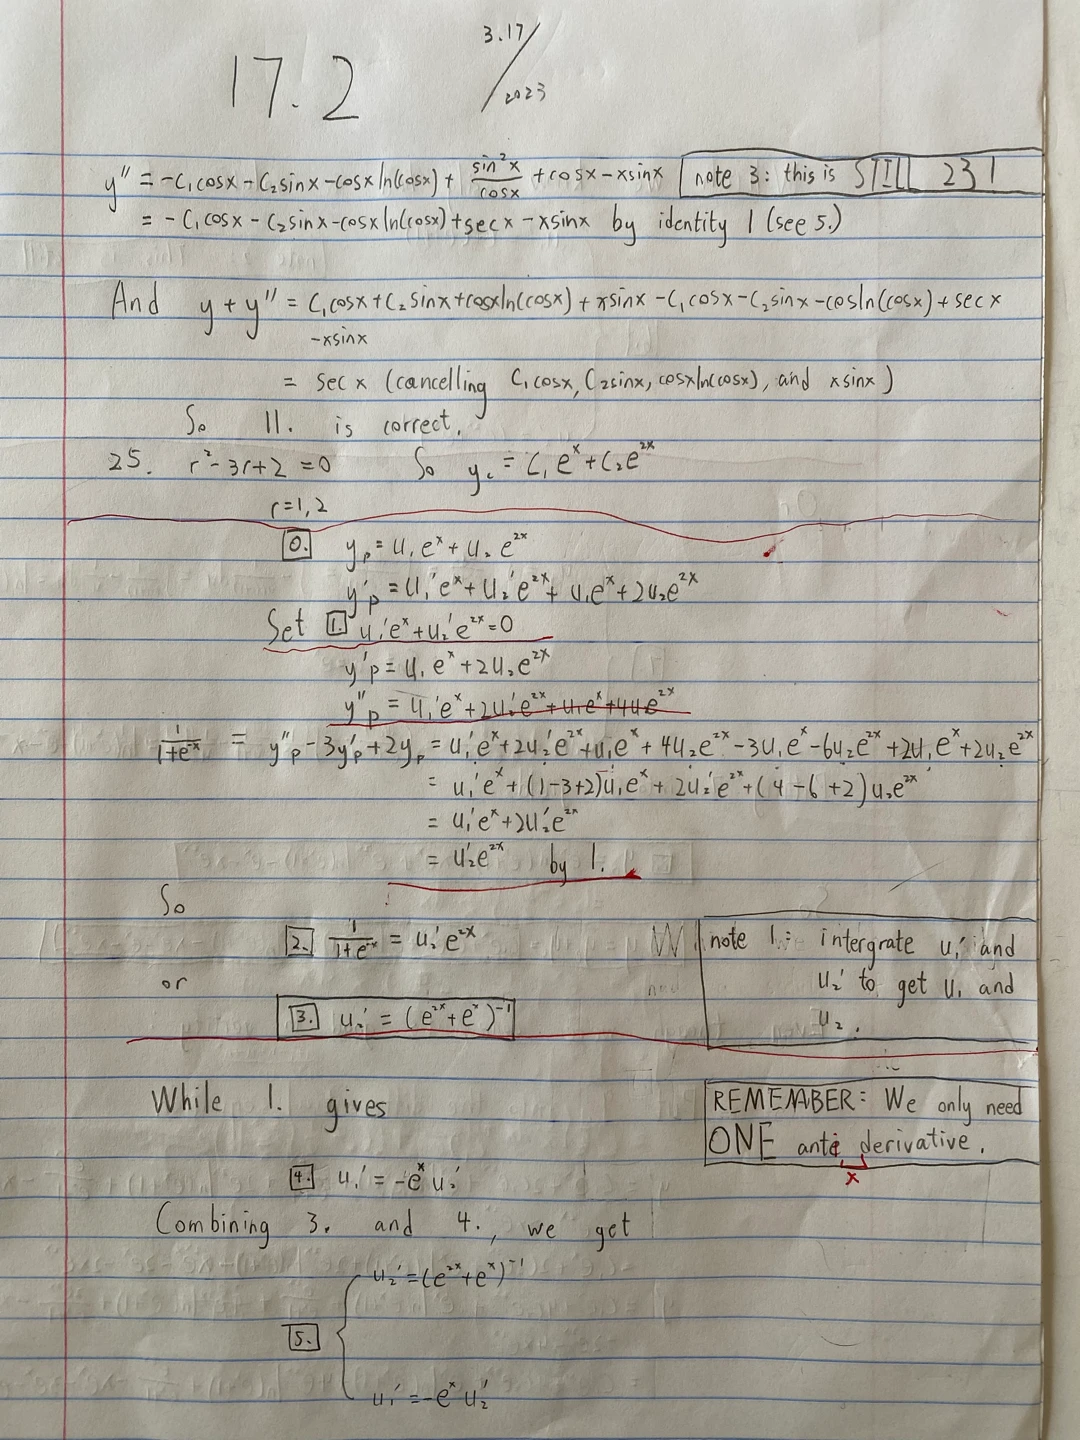 3.17/2023
17.2
y'' = -C₁cosx - C₂sinx - cosx ln(cosx) + sin²x/cosx + cosx - xsinx
note 3: this is STILL 231
= -C₁cosx - C₂sinx - cosx ln(cosx) + secx - xsinx by identity 1 (see 5.)
And y + y'' = C₁cosx + C₂sinx + cosxln(cosx) + xsinx - C₁cosx - C₂sinx - cosln(cosx) + secx
-xsinx
= sec x (cancelling C₁cosx, C₂sinx, cosxln(cosx), and xsinx)
So 11. is correct.
25. r²-3r+2 = 0 So y_c = C₁e^x + C₂e^2x
r=1,2
0. y_p = u₁e^x + u₂e^2x
y'_p = u₁'e^x + u₂'e^2x + u₁e^x + 2u₂e^2x
Set 1. u₁'e^x + u₂'e^2x = 0
y'_p = u₁e^x + 2u₂e^2x
y''_p = u₁'e^x + 2u₂'e^2x + u₁e^x + 4u₂e^2x
1/(1+e^-x) = y''_p - 3y'_p + 2y_p = u₁'e^x + 2u₂'e^2x + u₁e^x + 4u₂e^2x - 3u₁e^x - 6u₂e^2x + 2u₁e^x + 2u₂e^2x
= u₁'e^x + (1-3+2)u₁e^x + 2u₂'e^2x + (4-6+2)u₂e^2x
= u₁'e^x + 2u₂'e^2x
= u₂'e^2x by 1.
So
2. 1/(1+e^-x) = u₂'e^2x
or
3. u₂' = (e^2x + e^x)^-1
note 1: intergrate u₁' and
u₂' to get u₁ and
u₂.
While 1. gives
REMEMBER: We only need
ONE ante derivative.
x
4. u₁' = -e^x u₂'
Combining 3. and 4., we get
u₂' = (e^2x + e^x)^-1
5.
u₁' = -e^x u₂'